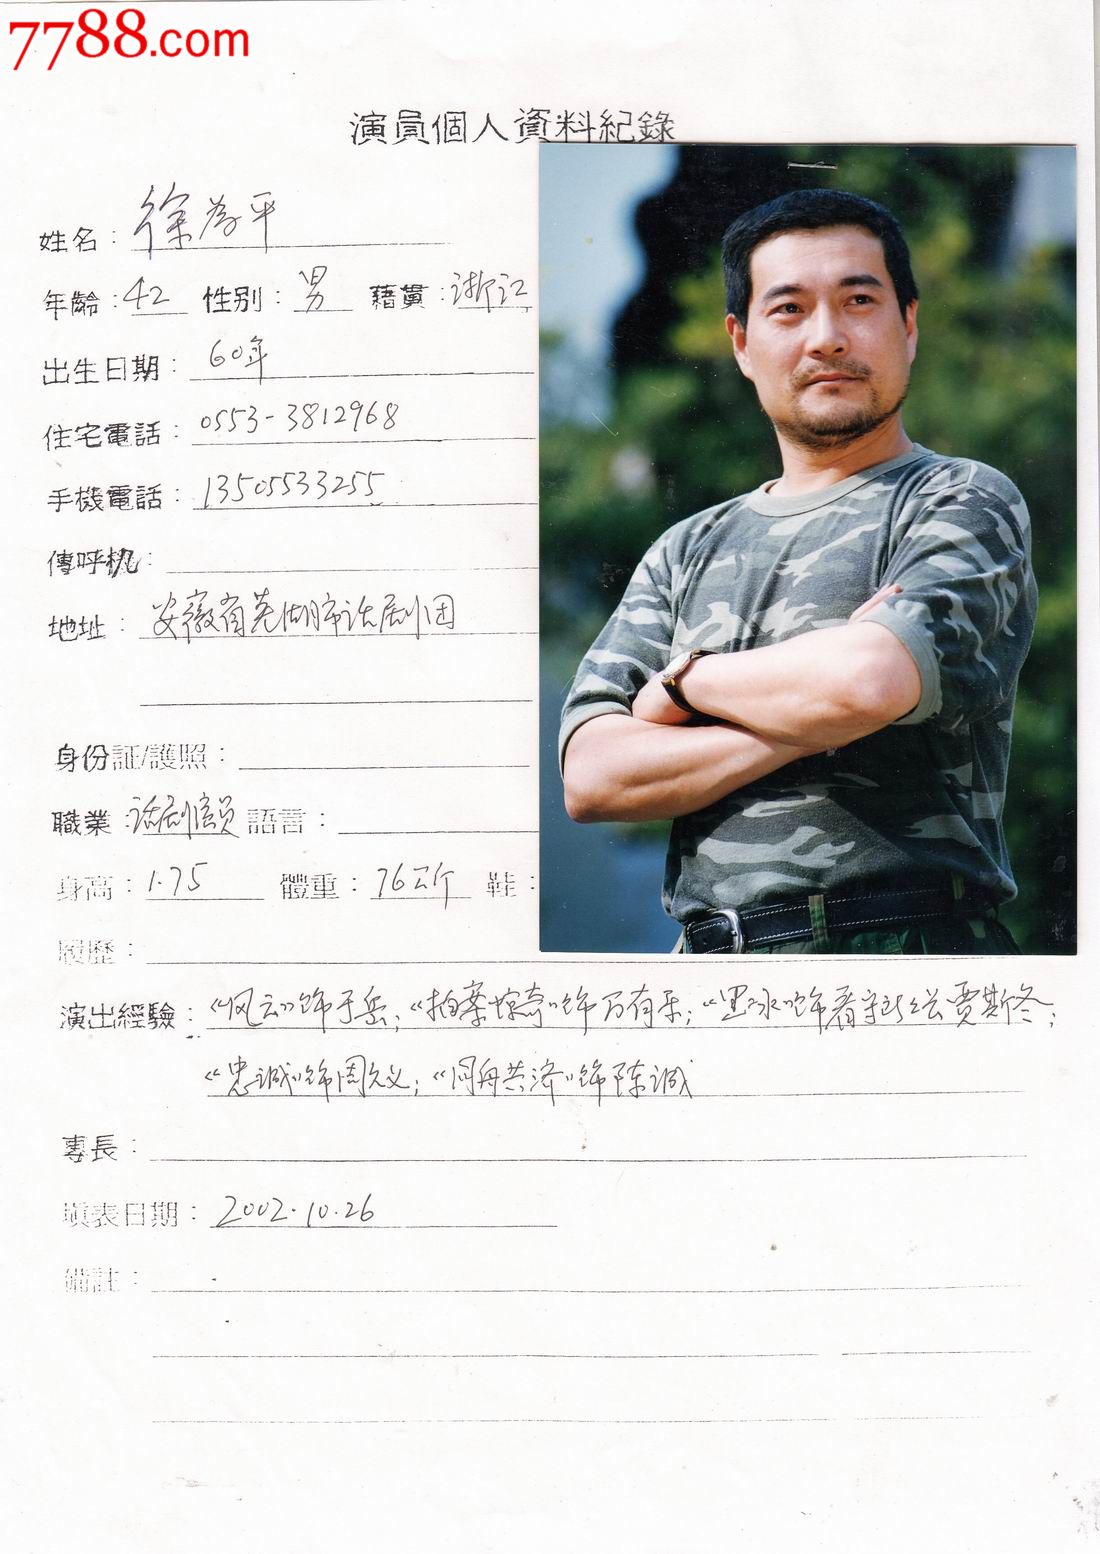 7788.com
演員個人資料紀錄
姓名：徐为平
年齡：42 性别：男 藉貫：浙江
出生日期：60年
住宅電話：0553-3812968
手機電話：13505533255
傳呼机：
地址：安徽省芜湖市话剧团
身份証/護照：
職業：话剧演员 語言：
身高：1.75 體重：76公斤 鞋：
履歷：
演出經驗：《风云》饰于岳；《拍案惊奇》饰万有采；《黑冰》饰看守所长贾斯冬；
《忠诚》饰周久义；《同舟共济》饰陈诚
專長：
填表日期：2002.10.26
備註：